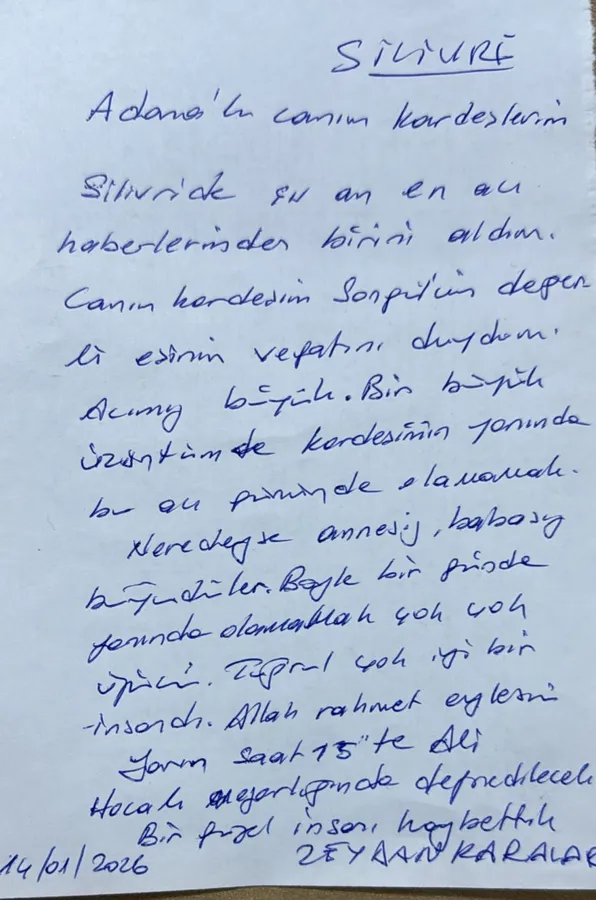 SİLİVRİ
Adana'lı canım kardeşlerim
Silivride şu an en acı
haberlerinden birini aldım.
Canım kardeşim Songül'ün değer
li eşinin vefatını duydum.
Acımız büyük. Bir büyük
üzüntüm de kardeşimin yanında
bu acı gününde olamamak.
Neredeyse annesiy, babasıy
büyüdüler. Böyle bir günde
yanında olamamak çok çok
üzücü. Tuğrul çok iyi bir
insandı. Allah rahmet eylesin
Yarın saat 15'te Ali
Hocalı mezarlığında defnedilecek
Bir güzel insanı kaybettik
14/01/2026 ZEYDAN KARALAR